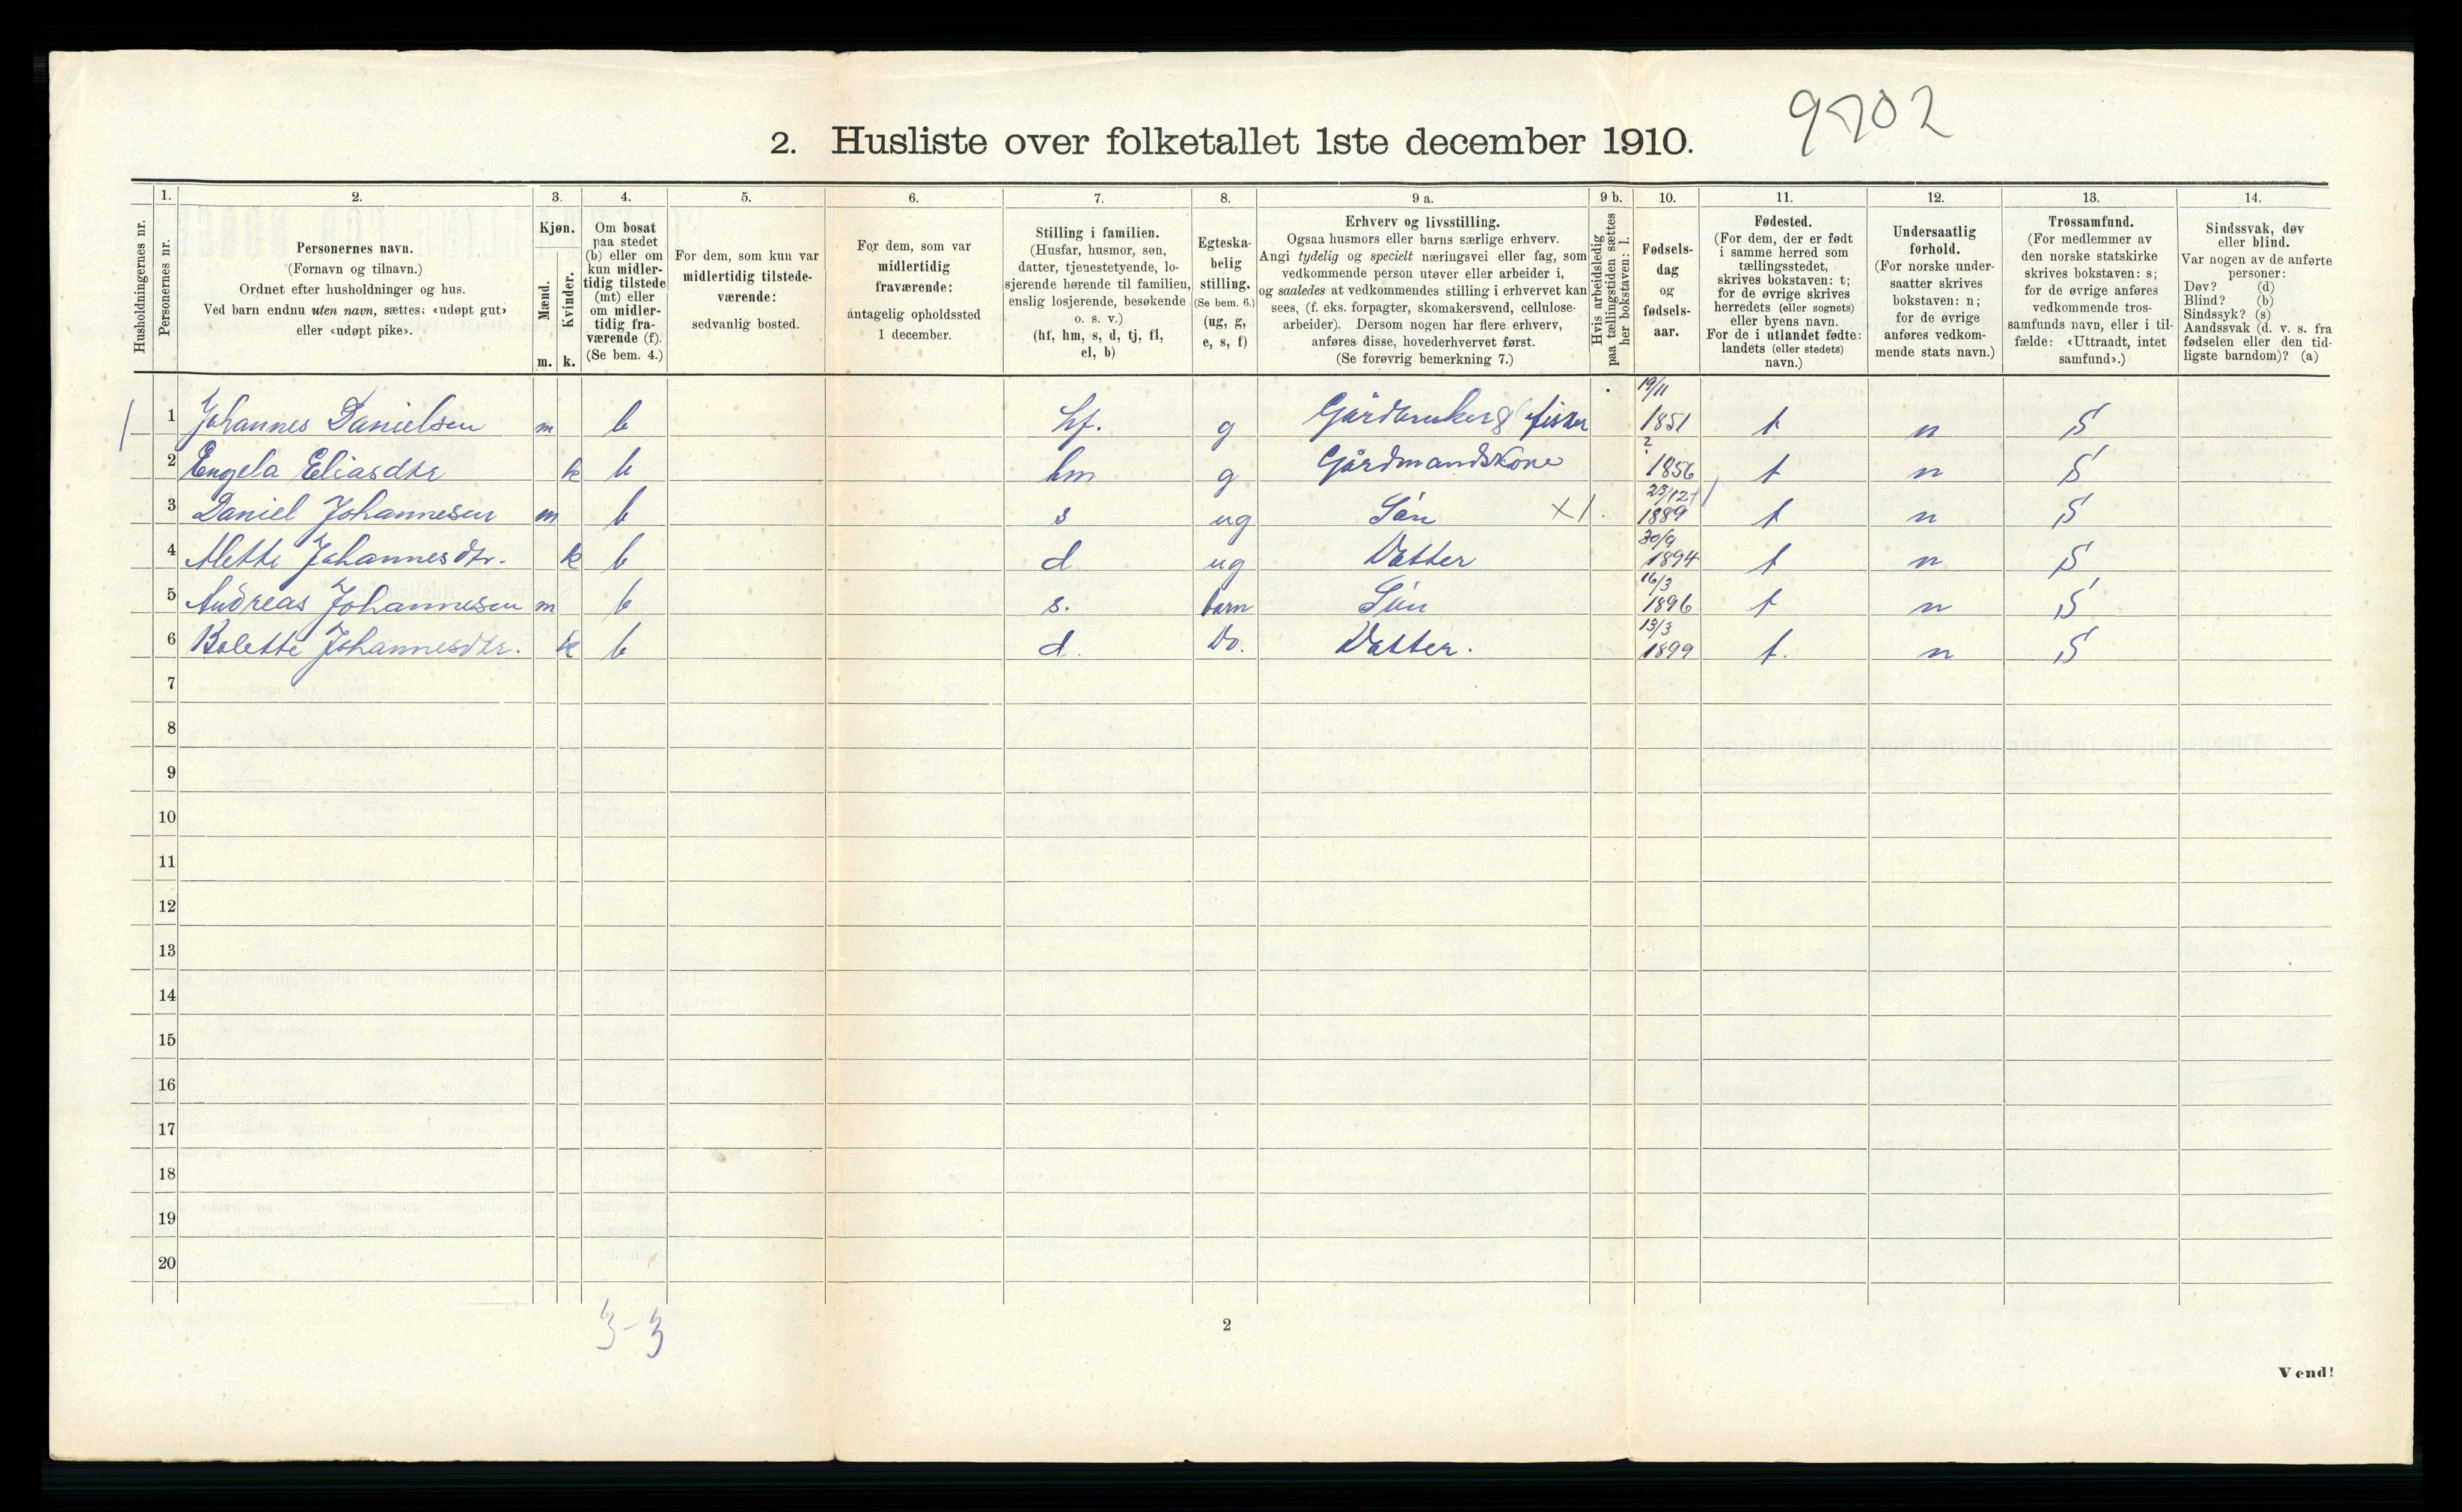 9702
2. Husliste over folketallet 1ste december 1910.
Husholdningernes nr.
1.
Personernes nr.
2.
Personernes navn.
(Fornavn og tilnavn.)
Ordnet efter husholdninger og hus.
Ved barn endnu uten navn, sættes: «udøpt gut»
eller «udøpt pike».
3.
Kjøn.
Mænd.
m.
Kvinder.
k.
4.
Om bosat
paa stedet
(b) eller om
kun midler-
tidig tilstede
(mt) eller
om midler-
tidig fra-
værende (f).
(Se bem. 4.)
5.
For dem, som kun var
midlertidig tilstede-
værende:
sedvanlig bosted.
6.
For dem, som var
midlertidig
fraværende:
antagelig opholdssted
1 december.
7.
Stilling i familien.
(Husfar, husmor, søn,
datter, tjenestetyende, lo-
sjerende hørende til familien,
enslig losjerende, besøkende
o. s. v.)
(hf, hm, s, d, tj, fl,
el, b)
8.
Egteska-
belig
stilling.
(Se bem. 6.)
(ug, g,
e, s, f)
9 a.
Erhverv og livsstilling.
Ogsaa husmors eller barns særlige erhverv.
Angi tydelig og specielt næringsvei eller fag, som
vedkommende person utøver eller arbeider i,
og saaledes at vedkommendes stilling i erhvervet kan
sees, (f. eks. forpagter, skomakersvend, cellulose-
arbeider). Dersom nogen har flere erhverv,
anføres disse, hovederhvervet først.
(Se forøvrig bemerkning 7.)
9 b.
Hvis arbeidsledig
paa tællingstiden sættes
her bokstaven: l.
10.
Fødsels-
dag
og
fødsels-
aar.
11.
Fødested.
(For dem, der er født
i samme herred som
tællingsstedet,
skrives bokstaven: t;
for de øvrige skrives
herredets (eller sognets)
eller byens navn.
For de i utlandet fødte:
landets (eller stedets)
navn.)
12.
Undersaatlig
forhold.
(For norske under-
saatter skrives
bokstaven: n;
for de øvrige
anføres vedkom-
mende stats navn.)
13.
Trossamfund.
(For medlemmer av
den norske statskirke
skrives bokstaven: s;
for de øvrige anføres
vedkommende tros-
samfunds navn, eller i til-
fælde: «Uttraadt, intet
samfund».)
14.
Sindssvak, døv
eller blind.
Var nogen av de anførte
personer:
Døv? (d)
Blind? (b)
Sindssyk? (s)
Aandssvak (d. v. s. fra
fødselen eller den tid-
ligste barndom)? (a)
1 1 Johannes Danielsen m b hf. g Gårdbruker & fisker 19/11 1851 t n S
2 Engela Eliasdtr k b hm g Gårdmandskone ? 1856 t n S
3 Daniel Johannesen m b s ug Søn X1. 23/12 1889 t n S
4 Alette Johannesdtr. k b d ug Datter 30/9 1894 t n S
5 Andreas Johannesen m b s. barn Søn 16/3 1896 t n S
6 Bolette Johannesdtr. k b d. Do. Datter. 13/3 1899 t. n S
7
8
9
10
11
12
13
14
15
16
17
18
19
20
3-3
2
Vend!